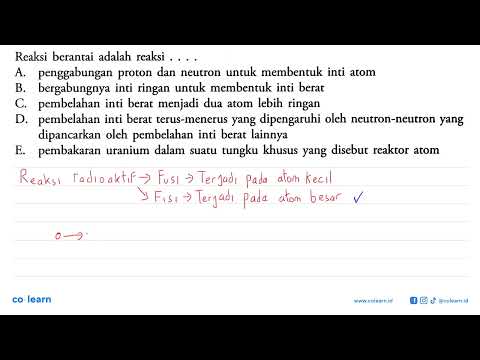 Reaksi berantai adalah reaksi . . . .
A. penggabungan proton dan neutron untuk membentuk inti atom
B. bergabungnya inti ringan untuk membentuk inti berat
C. pembelahan inti berat menjadi dua atom lebih ringan
D. pembelahan inti berat terus-menerus yang dipengaruhi oleh neutron-neutron yang
dipancarkan oleh pembelahan inti berat lainnya
E. pembakaran uranium dalam suatu tungku khusus yang disebut reaktor atom
Reaksi radioaktif → Fusi → Terjadi pada atom kecil
↘ Fisi → Terjadi pada atom besar ✓
o →
co·learn
www.colearn.id
@colearn.id